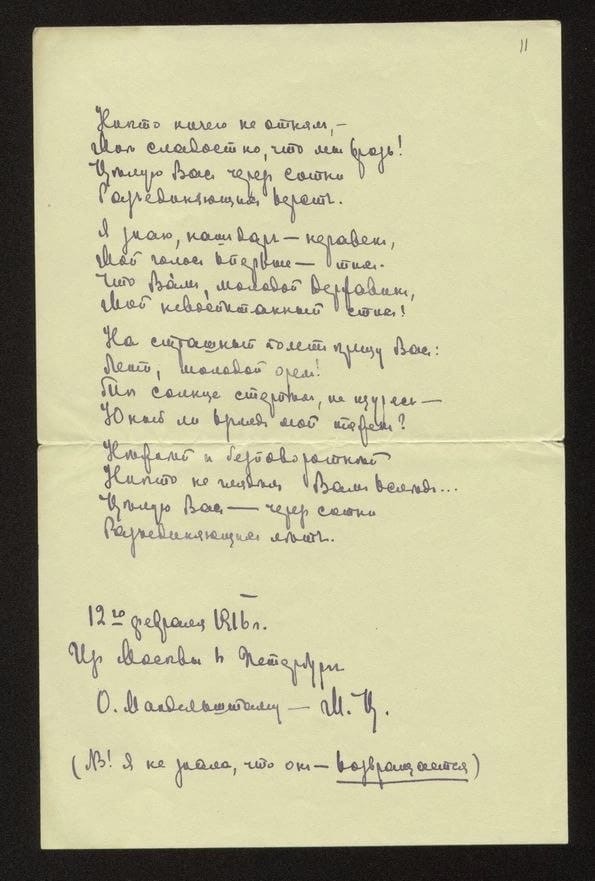 11
Никто ничего не отнял, —
Мне сладостно, что мы врозь!
Целую Вас через сотни
Разъединяющих верст.
Я знаю, наш дар — неравен,
Мой голос впервые — тих.
Что Вам, молодой Державин,
Мой невоспитанный стих!
На страшный полет крещу Вас:
Лети, молодой орел!
Ты солнце стерпел, не щурясь —
Юный ли взгляд мой тяжел?
Нежней и бесповоротней
Никто не глядел Вам вслед...
Целую Вас — через сотни
Разъединяющих лет.
12го февраля 1916 г.
Из Москвы в Петербург
О. Мандельштаму — М. Ц.
(NB! Я не знала, что он — возвращается)